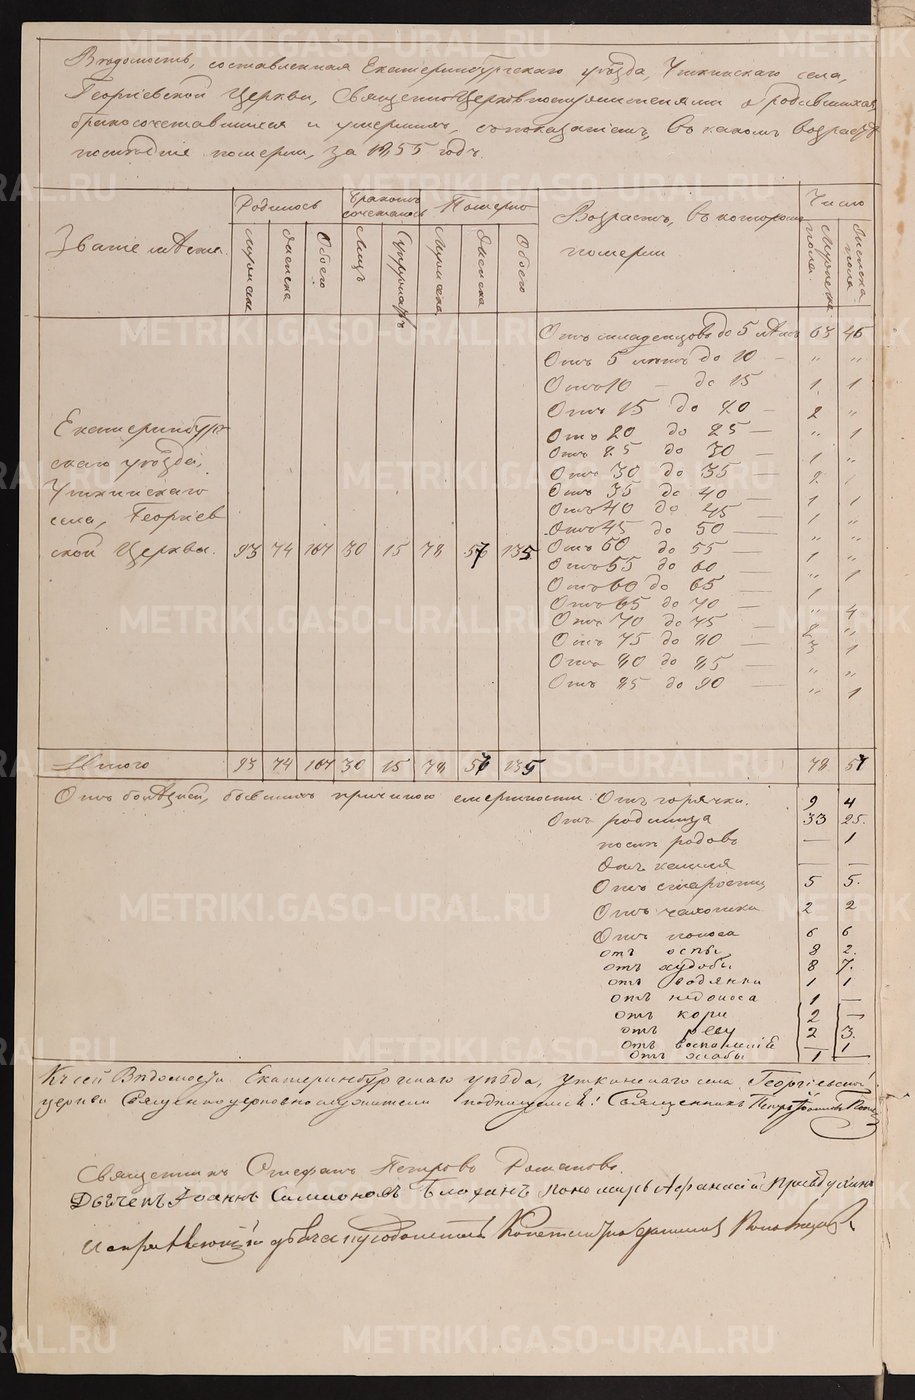 Ведомость, составленная Екатеринбургскаго уезда, Уткинскаго села,
Георгиевской Церкви, Священноцерковнослужителями о родившихся,
бракосочетавшихся и умершихъ, съ показаніемъ, въ какомъ возрасте
последніе померли, за 1855 годъ.
Званіе места.
Родилось
Бракомъ сочеталось
Померло
Возрастъ, въ которомъ померли
Число
мужеска
женска
Обоего
Лицъ
Супружествъ
Мужеска
Женска
Обоего
Мужеска пола.
Женска пола.
Отъ младенцовъ до 5 летъ 63 46
Отъ 5 летъ до 10 — " "
Отъ 10 — до 15 1 1
Отъ 15 до 20 — 2 "
Отъ 20 до 25 — " 1
Отъ 25 до 30 — 1 "
Отъ 30 до 35 — 2
Отъ 35 до 40 — 1 1
Отъ 40 до 45 —
Отъ 45 до 50 —
Отъ 50 до 55 —
Отъ 55 до 60 —
Отъ 60 до 65 —
Отъ 65 до 70 — " 4
Отъ 70 до 75 — 2 "
Отъ 75 до 80 — 3 1
Отъ 80 до 85 — " "
Отъ 85 до 90 — " 1
Екатеринбург
скаго уезда,
Уткинскаго
села, Георгіев
ской Церкви. 93 74 167 30 15 78 57 135
Итого 93 74 167 30 15 78 57 135 78 57
Отъ болезней, бывшихъ причиною смертности. Отъ горячки. 9 4
Отъ родимца 33 25.
после родовъ — 1
Отъ кашля — —
Отъ старости 5 5.
Отъ чахотки 2 2
Отъ поноса 6 6
отъ оспы 8 2.
отъ худобы 8 7.
отъ водянки 1 1
отъ недоноса 1 —
отъ кори 2 —
отъ реву 2 3.
отъ воспаленія — 1
отъ жабы 1 —
Къ сей Ведомости Екатеринбургскаго уезда, Уткинскаго села Георгіевской
церкви Священноцерковнослужители подписуемся: Священникъ Петръ
Священникъ Стефанъ Петровъ Романовъ.
Дьячекъ Іоаннъ Симоновъ пономарь Афанасій
METRIKI.GASO-URAL.RU